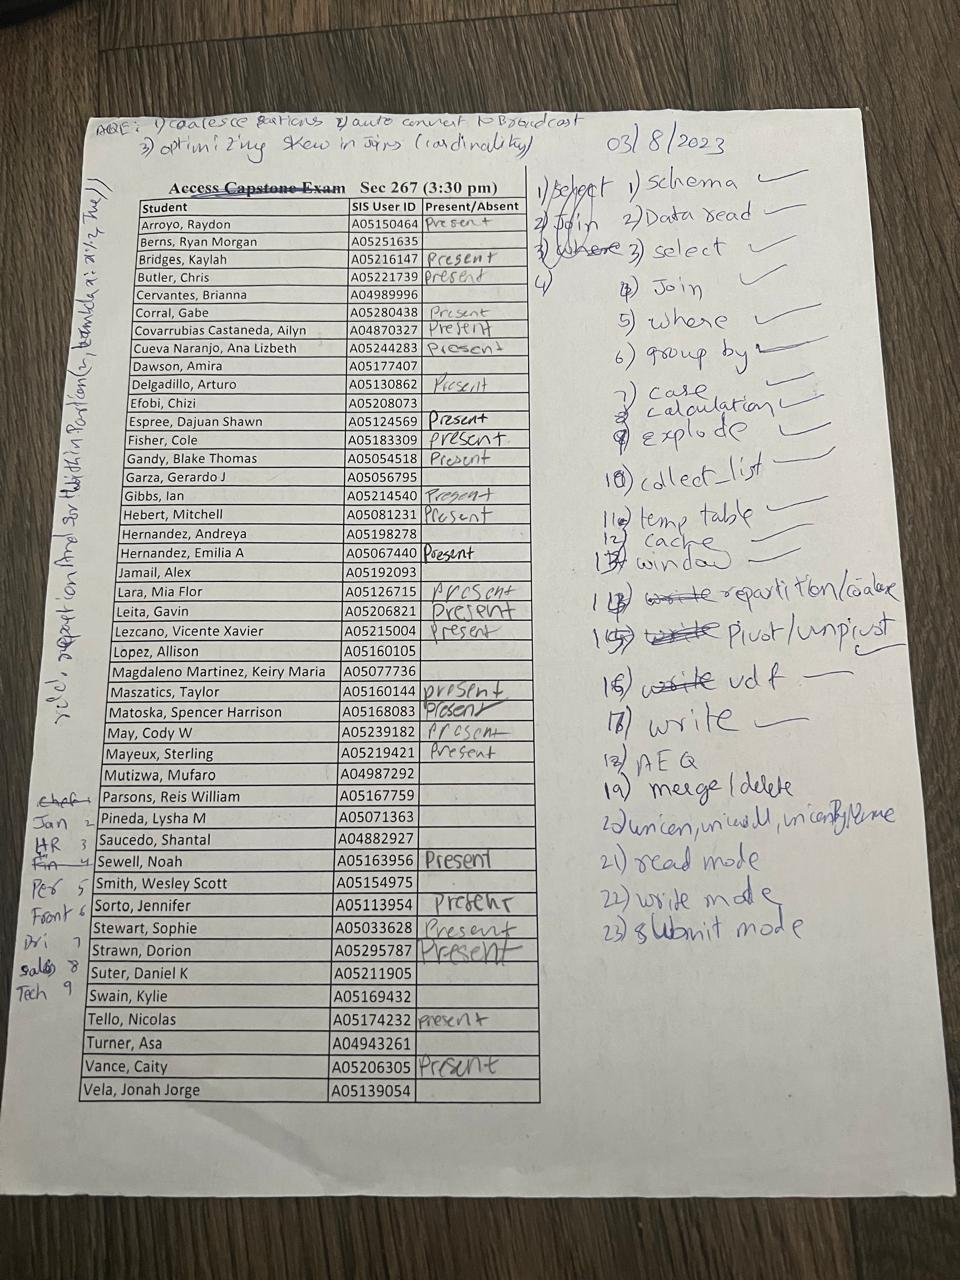 AQE: 1) coalesce partions 2) auto convert to Broadcast
3) optimizing skew in Joins (cardinality)
03/8/2023
Access Capstone Exam Sec 267 (3:30 pm)
Student SIS User ID Present/Absent
Arroyo, Raydon A05150464 Present
Berns, Ryan Morgan A05251635
Bridges, Kaylah A05216147 Present
Butler, Chris A05221739 Present
Cervantes, Brianna A04989996
Corral, Gabe A05280438 Present
Covarrubias Castaneda, Ailyn A04870327 Present
Cueva Naranjo, Ana Lizbeth A05244283 Present
Dawson, Amira A05177407
Delgadillo, Arturo A05130862 Present
Efobi, Chizi A05208073
Espree, Dajuan Shawn A05124569 Present
Fisher, Cole A05183309 Present
Gandy, Blake Thomas A05054518 Present
Garza, Gerardo J A05056795
Gibbs, Ian A05214540 Present
Hebert, Mitchell A05081231 Present
Hernandez, Andreya A05198278
Hernandez, Emilia A A05067440 Present
Jamail, Alex A05192093
Lara, Mia Flor A05126715 Present
Leita, Gavin A05206821 Present
Lezcano, Vicente Xavier A05215004 Present
Lopez, Allison A05160105
Magdaleno Martinez, Keiry Maria A05077736
Maszatics, Taylor A05160144 present
Matoska, Spencer Harrison A05168083 Present
May, Cody W A05239182 Present
Mayeux, Sterling A05219421 Present
Mutizwa, Mufaro A04987292
Parsons, Reis William A05167759
Pineda, Lysha M A05071363
Saucedo, Shantal A04882927
Sewell, Noah A05163956 Present
Smith, Wesley Scott A05154975
Sorto, Jennifer A05113954 Present
Stewart, Sophie A05033628 Present
Strawn, Dorion A05295787 Present
Suter, Daniel K A05211905
Swain, Kylie A05169432
Tello, Nicolas A05174232 present
Turner, Asa A04943261
Vance, Caity A05206305 Present
Vela, Jonah Jorge A05139054
1) select
2) Join
3) where
4)
1) schema
2) Data read
3) select
4) Join
5) where
6) group by
7) case
8 calculation
9 explode
10) collect_list
11) temp table
12) cache
13) window
repartition/coalesce
15) write Pivot/unpivot
16) write udf
17) write
18) AEQ
19) merge/delete
20) union, unionAll, unionByName
21) read mode
22) write mode
23) submit mode
Jan 2
HR 3
Fin 4
Per 5
Front 6
Dri 7
sales 8
Tech 9